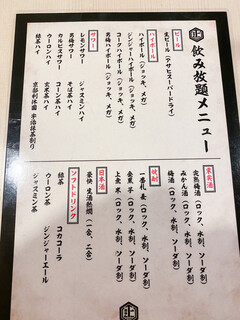 飲み放題メニュー
ビール
生ビール(アサヒスーパードライ)
ハイボール
ハイボール(ジョッキ、メガ)
ジンジャーハイボール(ジョッキ、メガ)
コークハイボール(ジョッキ、メガ)
男梅ハイボール(ジョッキ、メガ)
サワー
レモンサワー
男梅サワー
カルピスサワー
ウーロンハイ
緑茶ハイ
ジャスミンハイ
そば茶ハイ
コーン茶ハイ
玄米茶ハイ
京都利休園 宇治抹茶割り
果実酒
完熟梅酒(ロック、水割、ソーダ割)
みかん酒(ロック、水割、ソーダ割)
梅酒(ロック、水割、ソーダ割)
焼酎
一番札 麦(ロック、水割、ソーダ割)
金黒 芋(ロック、水割、ソーダ割)
上黒 米(ロック、水割、ソーダ割)
日本酒
豪快 生酒熱燗(一合、二合)
ソフトドリンク
緑茶
ウーロン茶
ジャスミン茶
コカコーラ
ジンジャーエール